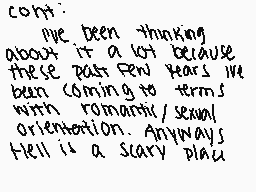 cont:
I've been thinking
about it a lot because
these past few years I've
been coming to terms
with romantic/sexual
orientation. Anyways
Hell is a scary place